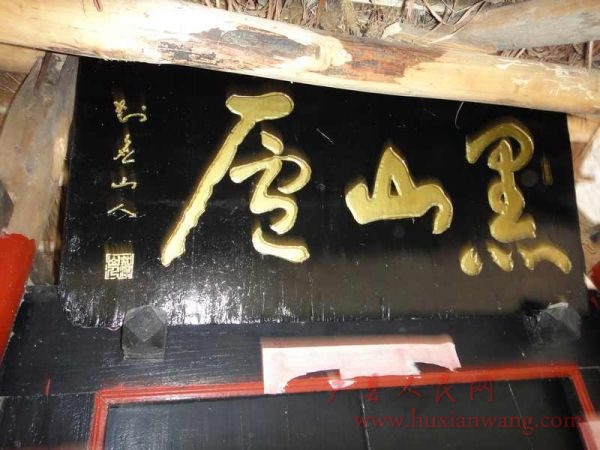 黑山庐
山人
户县人民网
www.huxianwang.com